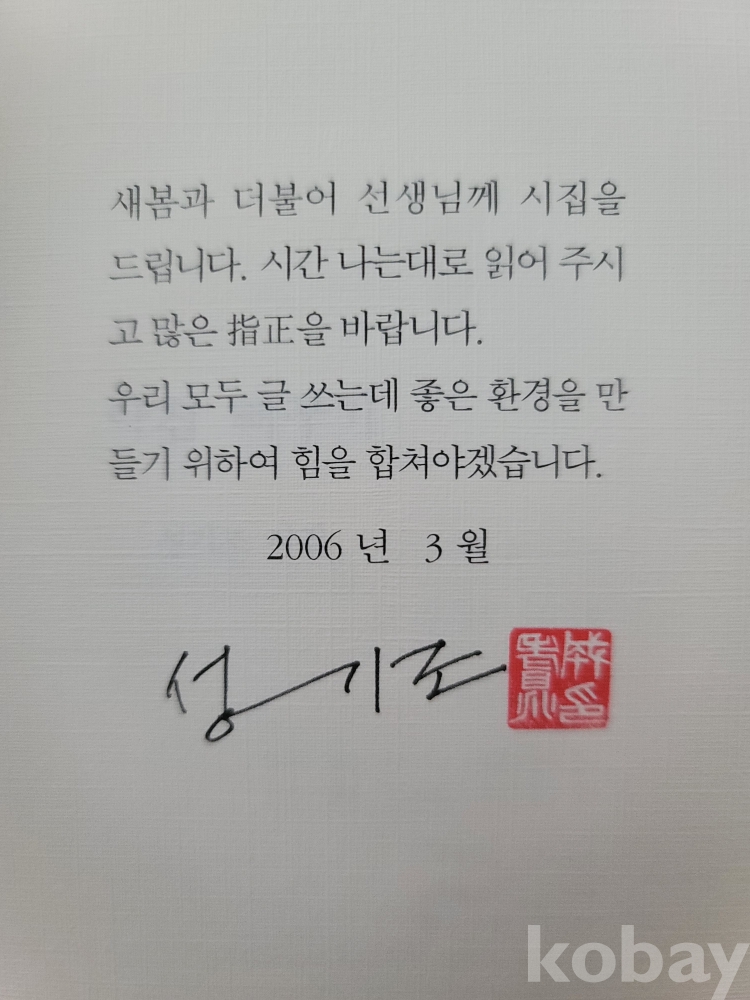 새봄과 더불어 선생님께 시집을
드립니다. 시간 나는대로 읽어 주시
고 많은 指正을 바랍니다.
우리 모두 글 쓰는데 좋은 환경을 만
들기 위하여 힘을 합쳐야겠습니다.
2006 년 3 월
성기조
kobay